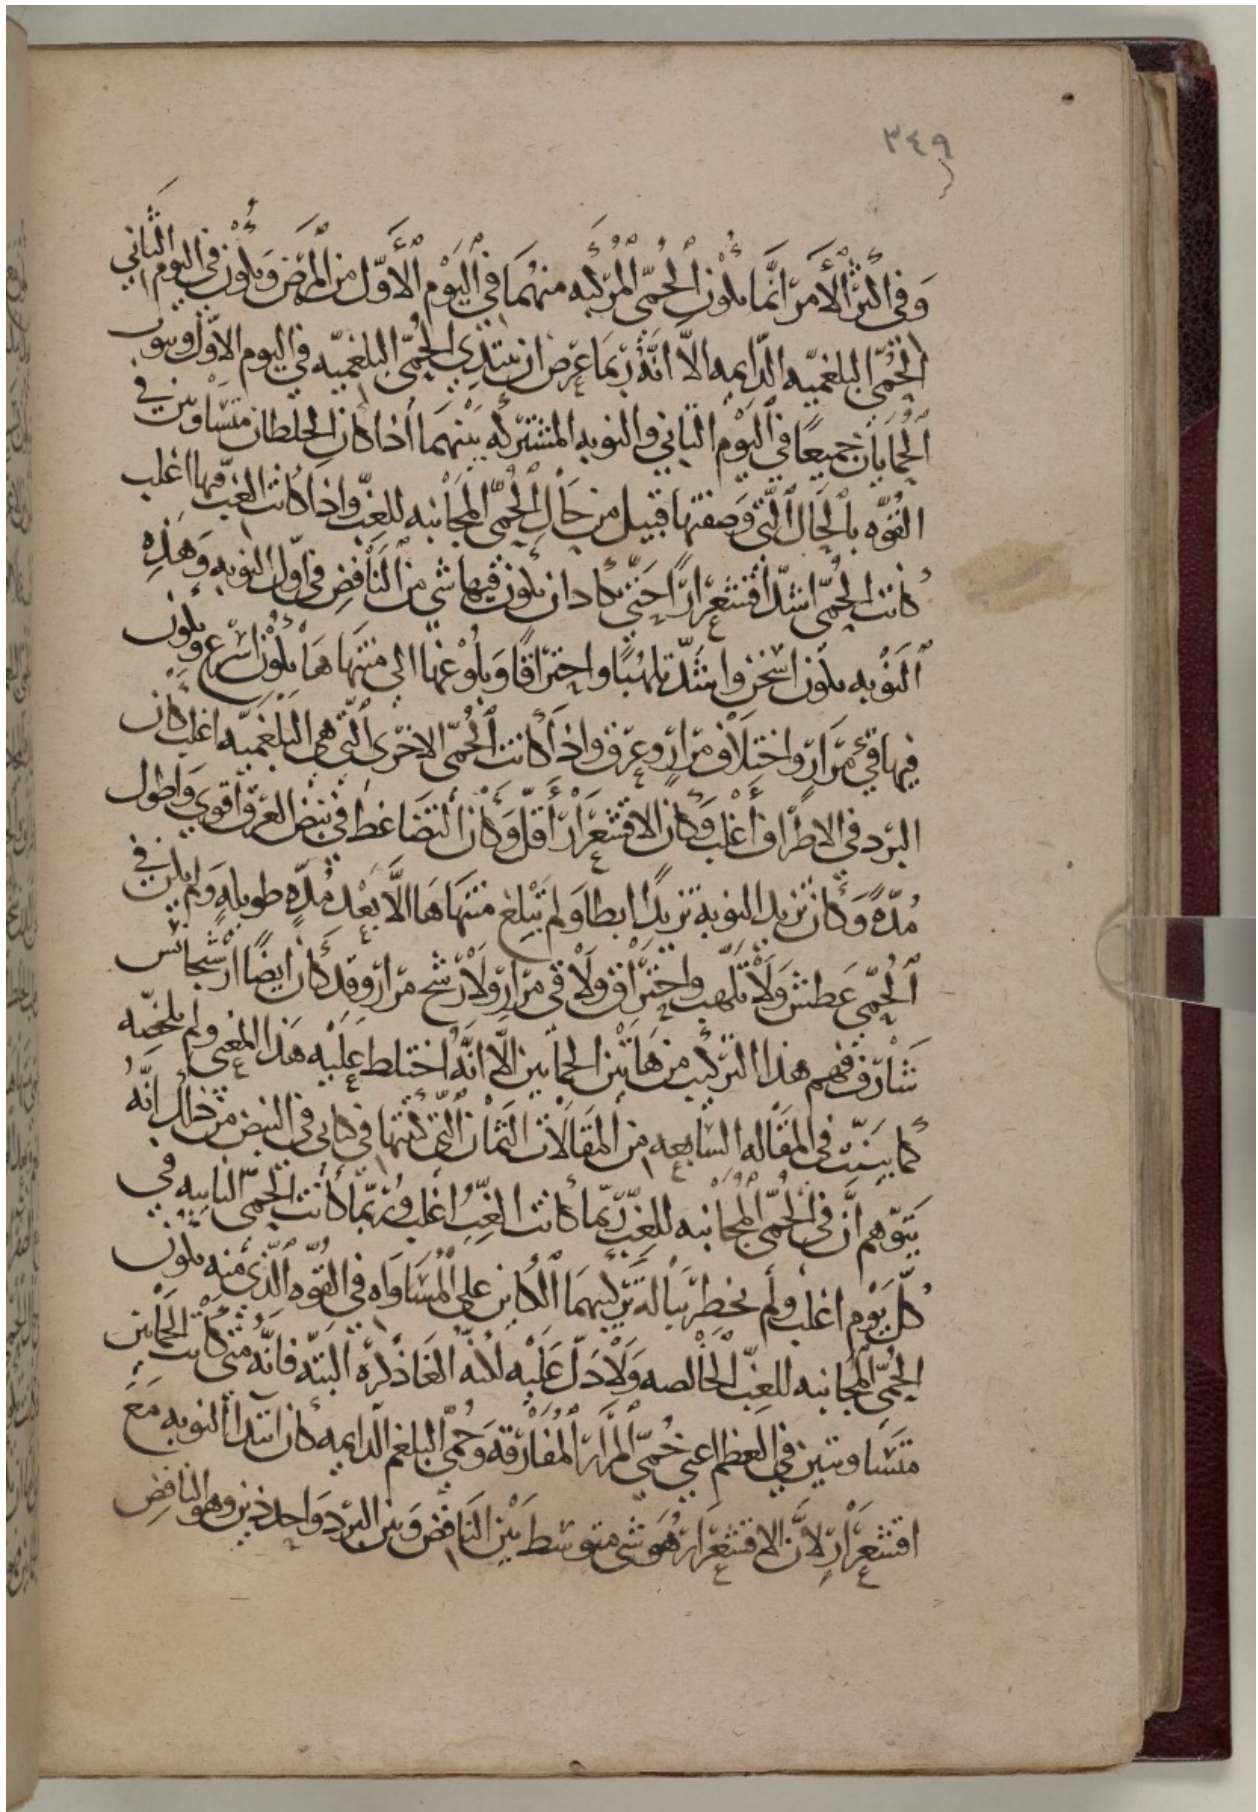 ٣٤٩
وَفي اكثر الأمر انّما يكون الحمّى المركبه منهما في اليوم الأوّل من المرض ويكون في اليوم الثاني
الحمّى البلغميه الدّايمه الاّ انّه ربما عرض ان يبتدي الحمّى البلغميّه في اليوم الاوّل وينوب
الحمّيان جميعًا في اليوم الثاني والنوبه المشتركه بينهما اذا كان الخلطان متساويين في
القوّه بالحال التي وصفتها قبيل من حال الحمّى المجانبه للغبّ واذا كانت الغبّ فيها اغلب
كانت الحمّى اشدّ اقشعرارًا حتّى يكاد ان يكون فيها شي من النافض في اوّل النوبه وهذه
النوبه يكون اسخن واشدّ تلهبًا واحتراقًا وبلوغها الى منتهاها يكون اسرع ويكون
فيها قي مرار واختلاف مرار وعرق واذا كانت الحمّى الاخرى التي هي البلغميه اغلب كان
البرد في الاطراف اغلب وكان الاقشعرار اقلّ وكان التضاغط في نبض العرق اقوى واطول
مدّة وكان تزيد النوبه تزيدًا ابطا ولم تبلغ منتهاها الاّ بعد مدّه طويله ولم يكن في
الحمّى عطش ولا تلهّب واحتراق ولا قي مرار ولا رشح مرار وقد كان ايضًا ارشيجانس
شارف فهم هذا التركيب من هاتين الحمايين الاّ انّه اختلط عليه هذا المعنى ولم يلخصه
كما بيّنت في المقاله السابعه من المقالات الثمان التي كتبتها في كتابي في النبض من انّه
يتوّهم انّ في الحمّى المجانبه للغبّ ربّما كانت الغبّ اغلب وربّما كانت الحمّى النايبه في
كلّ يوم اغلب ولم يخطر بباله تركيبهما الكاين على المساواه في القوّه الذي منه يكون
الحمّى المجانبه للغبّ الخالصه ولا دلّ عليه لكنّه الغا ذكره البتّه فانّه متى كانت الحمايين
متساويتين في العظم اعني حمّى المرار المفارقة وحمّى البلغم الدايمه كان ابتدا النوبه مع
اقشعرار لانّ الاقشعرار هو شي متوسّط بين النافض وبين البرد واحد ذين وهو النافض